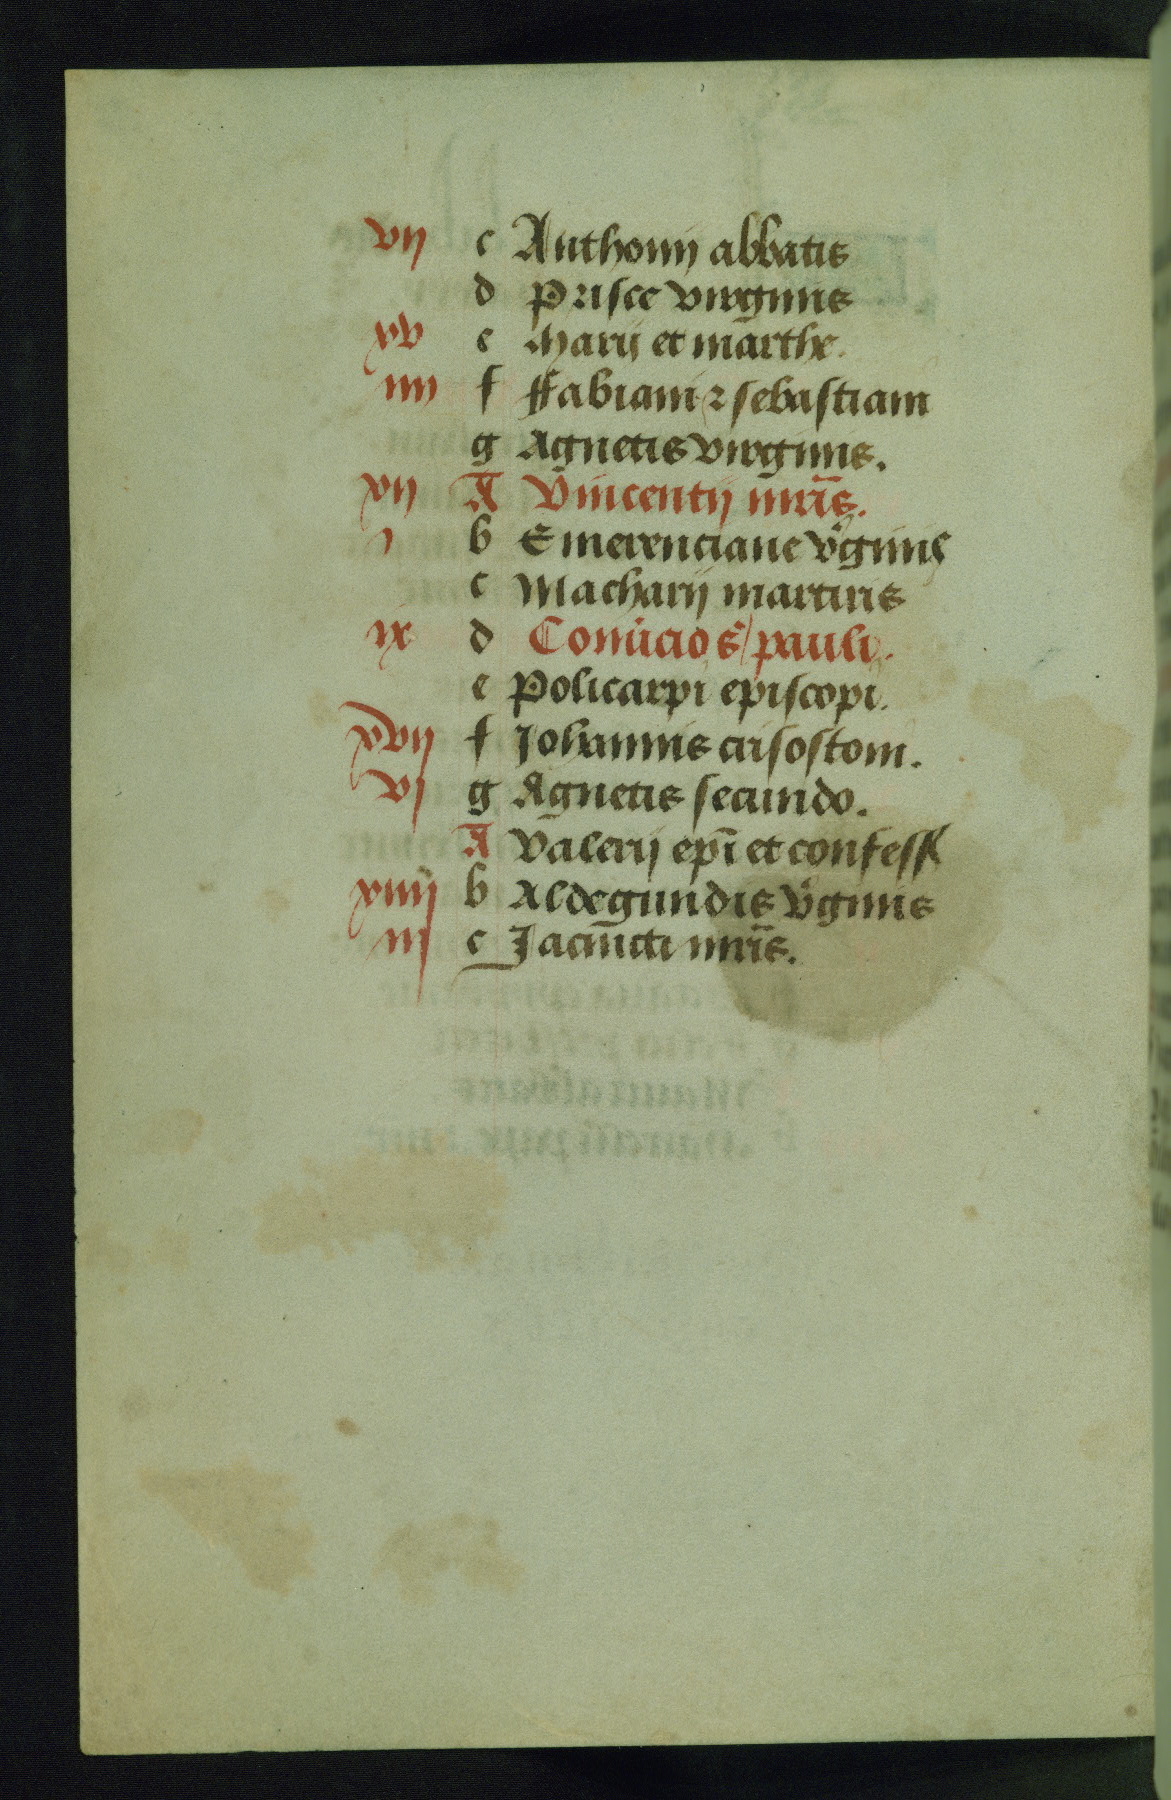 vij c Anthonij abbatis
d Prisce virginis
xv e Marij et marthe.
iiij f ffabiani ⁊ sebastiani
g Agnetis virginis.
xij A Vincentij mr̄is.
i b Emerenciane v̓ginis
c Macharij martiris
ix d Conũcio s̄ pauli.
e Policarpi episcopi.
xvij f Johannis crisostomi.
vj g Agnetis secundo.
A Valerij ep̄i et confess
xiiij b Aldegundis v̓ginis
iij c Jacincti mr̄is.